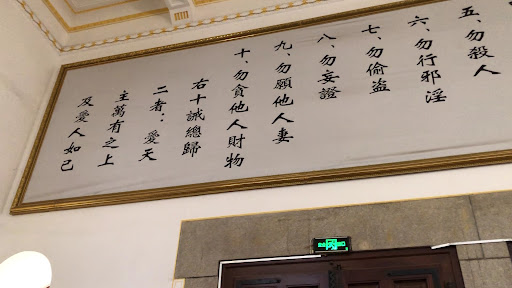 五、勿殺人
六、勿行邪淫
七、勿偷盜
八、勿妄證
九、勿願他人妻
十、勿貪他人財物
右十誡總歸
二者：愛天
主萬有之上
及愛人如己